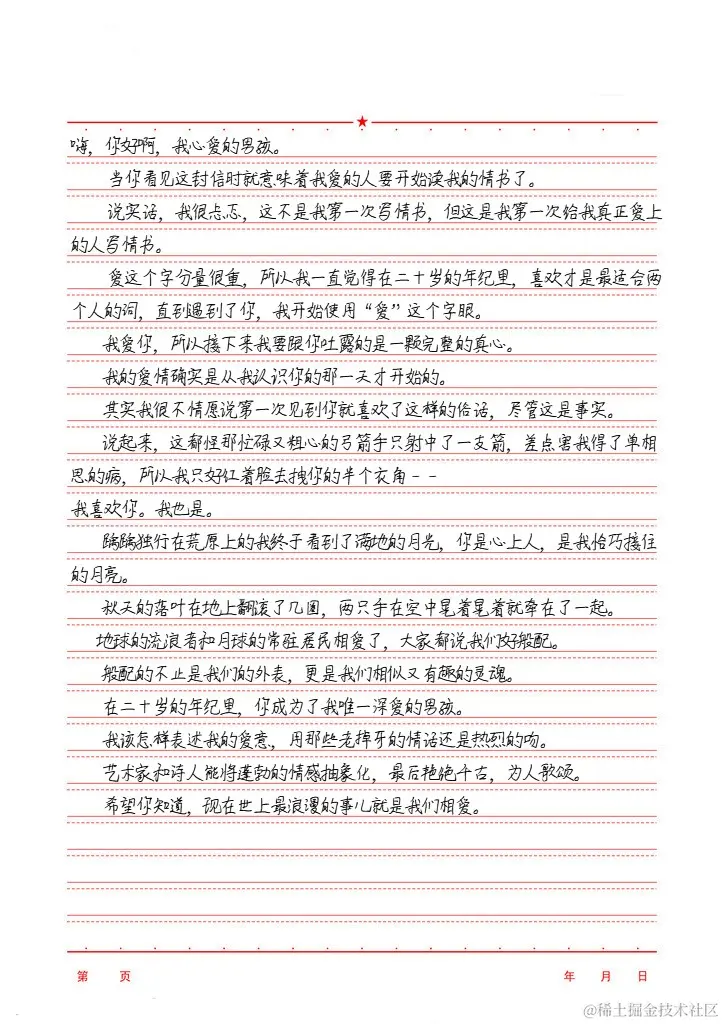 嗨，你好啊，我心爱的男孩。
当你看见这封信时就意味着我爱的人要开始读我的情书了。
说实话，我很忐忑，这不是我第一次写情书，但这是我第一次给我真正爱上
的人写情书。
爱这个字分量很重，所以我一直觉得在二十岁的年纪里，喜欢才是最适合两
个人的词，直到遇到了你，我开始使用“爱”这个字眼。
我爱你，所以接下来我要跟你吐露的是一颗完整的真心。
我的爱情确实是从我认识你的那一天才开始的。
其实我很不情愿说第一次见到你就喜欢了这样的俗话，尽管这是事实。
说起来，这都怪那忙碌又粗心的弓箭手只射中了一支箭，差点害我得了单相
思的病，所以我只好红着脸去拽你的半个衣角--
我喜欢你。我也是。
踽踽独行在荒原上的我终于看到了满地的月光，你是心上人，是我恰巧接住
的月亮。
秋天的落叶在地上翻滚了几圈，两只手在空中晃着晃着就牵在了一起。
地球的流浪者和月球的常驻居民相爱了，大家都说我们好般配。
般配的不止是我们的外表，更是我们相似又有趣的灵魂。
在二十岁的年纪里，你成为了我唯一深爱的男孩。
我该怎样表述我的爱意，用那些老掉牙的情话还是热烈的吻。
艺术家和诗人能将蓬勃的情感抽象化，最后艳绝千古，为人歌颂。
希望你知道，现在世上最浪漫的事儿就是我们相爱。
第 页 年 月 日
@稀土掘金技术社区